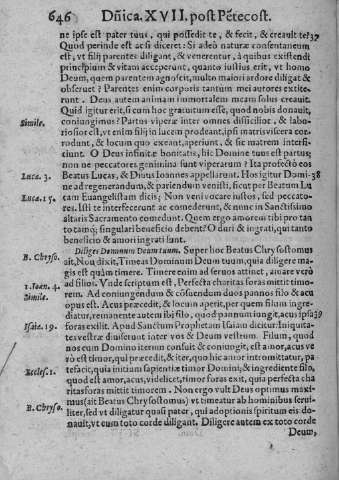 646 Dñica. XVII. post Pẽtecost.
ne ipse est pater tuus, qui possedit te, & fecit, & creauit te? 37
Quod perinde est ac si diceret: Si adeò naturæ consentaneum
est, vt filij parentes diligant, & venerentur, à quibus existendi
principium & vitam acceperunt, quanto iustius erit, vt homo
Deum, quem parentem agnoscit, multo maiori ardore diligat &
obseruet? Parentes enim corporis tantum mei autores extite-
runt. Deus autem animam immortalem meam solus creauit.
Quid igitur erit, si cum hoc gratuitum esse, quod nobis donauit,
Simile. coniungimus? Partus viperæ inter omnes difficilior, & labo-
riosior est, vt enim filij in lucem prodeant, ipsi matris viscera cor-
rodunt, & locum quo exeant, aperiunt, & sic matrem interfi-
ciunt. O Deus infinitæ bonitatis, hic Domine tuus est partus;
non ne peccatores genimina sunt viperarum? Ita profectò eos
Luca. 3. Beatus Lucas, & Diuus Ioannes appellarunt. Hos igitur Domi- 38
ne ad regenerandum, & pariendum venisti, sicut per Beatum Lu
Luca. 15. cam Euangelistam dicis; Non veni vocare iustos, sed peccato-
res. Isti te interfecerunt ac comederunt, & nunc in Sanctissimo
altaris Sacramento comedunt. Quem ergo amorem tibi pro tan
to tamq; singulari beneficio debent? O duri & ingrati, qui tanto
beneficio & amori ingrati sunt.
Diliges Dominum Deum tuum. Super hoc Beatus Chrysostomus
B. Chryso. ait, Non dixit, Timeas Dominum Deum tuum, quia diligere ma-
gis est quàm timere. Timere enim ad seruos attinet, amare verò
1. Ioan. 4. ad filios. Vnde scriptum est, Perfecta charitas foras mittit timo-
Simile. rem. Ad coniungendum & cõsuendum duos pannos filo & acu
opus est. Acus præcedit, & locum aperit, per quem filum ingre-
diatur, remanente autem ibi filo, quod pannum iungit, acus ipsa 39
Isaie. 19. foras exilit. Apud Sanctum Prophetam Isaiam dicitur: Iniquita-
tes vestræ diuiserunt inter vos & Deum vestrum. Filum, quod
nos cum Domino iterum consuit & coniungit, est amor, acus ve
rò est timor, qui præcedit, & iter, quo hic amor intromittatur, pa
Eccles. 1. tefacit, quia initium sapientiæ timor Domini, & ingrediente filo,
quod est amor, acus, videlicet, timor foras exit, quia perfecta cha
ritas foras mittit timorem. Non ergo vult Deus optimus maxi
B. Chryso. mus (ait Beatus Chrysostomus) vt timeatur ab hominibus serui-
liter, sed vt diligatur quasi pater, qui adoptionis spiritum eis do-
nauit, vt eum toto corde diligant. Diligere autem ex toto corde
Deum,